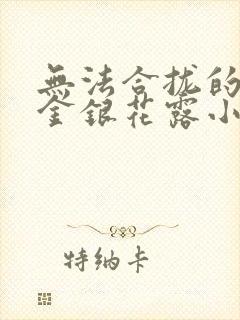 無法合拢的
金銀花露小
特纳卡